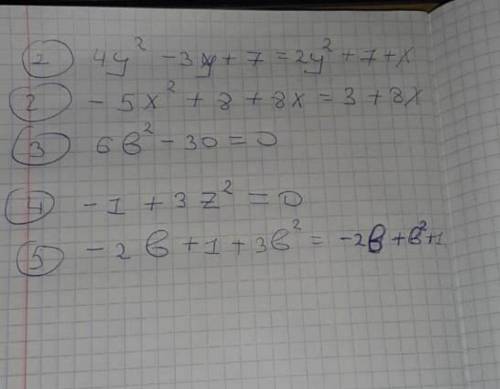 1 4y² - 3y + 7 = 2y² + 7 + x
2 - 5x² + 8 + 8x = 3 + 8x
3 6в² - 30 = 0
4 - 1 + 3z² = 0
5 - 2в + 1 + 3в² = -2в + в² + 1